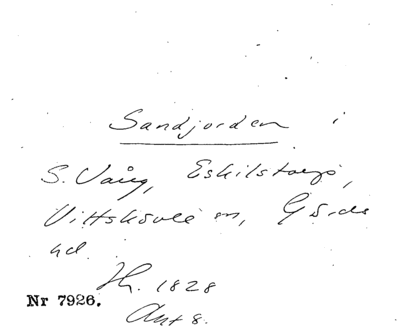 Sandjorden i
S. Vång, Eskilstorp,
Vittskövle sn, Gärds
hd.
Hr. 1828
Nr 7926.
Akt 8.